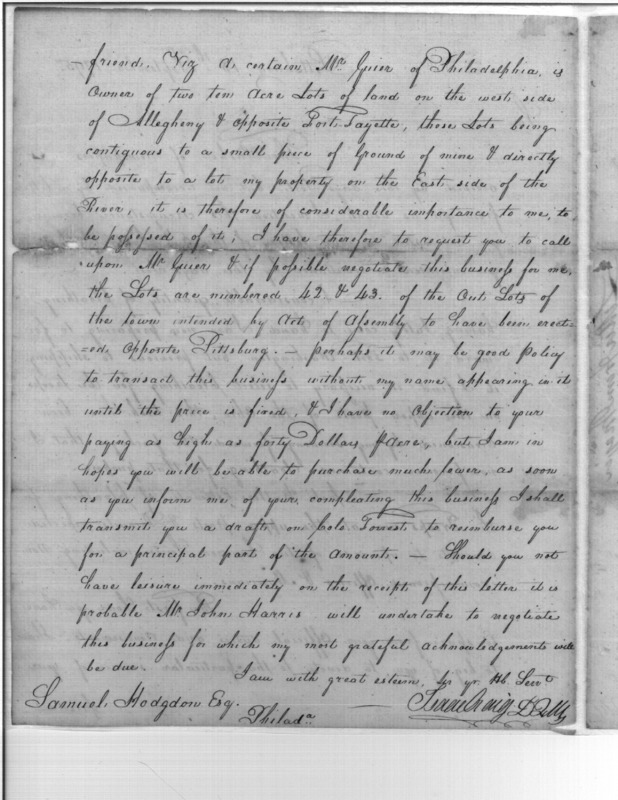 friend. Viz a certain Mr. Guier of Philadelphia, is
Owner of two ten Acre Lots of land on the west side
of Allegheny & opposite Fort Fayette, those Lots being
contiguous to a small piece of Ground of mine & directly
opposite to a lot my property on the East side of the
River, it is therefore of considerable importance to me, to
be possessed of it; I have therefore to request you to call
upon Mr Guier & if possible negotiate this business for me,
the Lots are numbered 42 & 43. of the Out Lots of
the town intended by Act of Assembly to have been erect=
=ed opposite Pittsburg. — perhaps it may be good policy
to transact this business without my name appearing in it
until the price is fixed, & I have no Objection to your
paying as high as forty Dollars ⅌ Acre, but I am in
hopes you will be able to purchase much lower, as soon
as you inform me of your compleating this business I shall
transmit you a draft on Colo. Forrest to reimburse you
for a principal part of the amount. — Should you not
have leisure immediately on the receipt of this letter it is
probable Mr. John Harris will undertake to negotiate
this business for which my most grateful acknowledgements will
be due.
I am with great esteem, Sr yr. Hb. Servt
Samuel Hodgdon Esq. Isaac Craig D.Q.M.
Philada